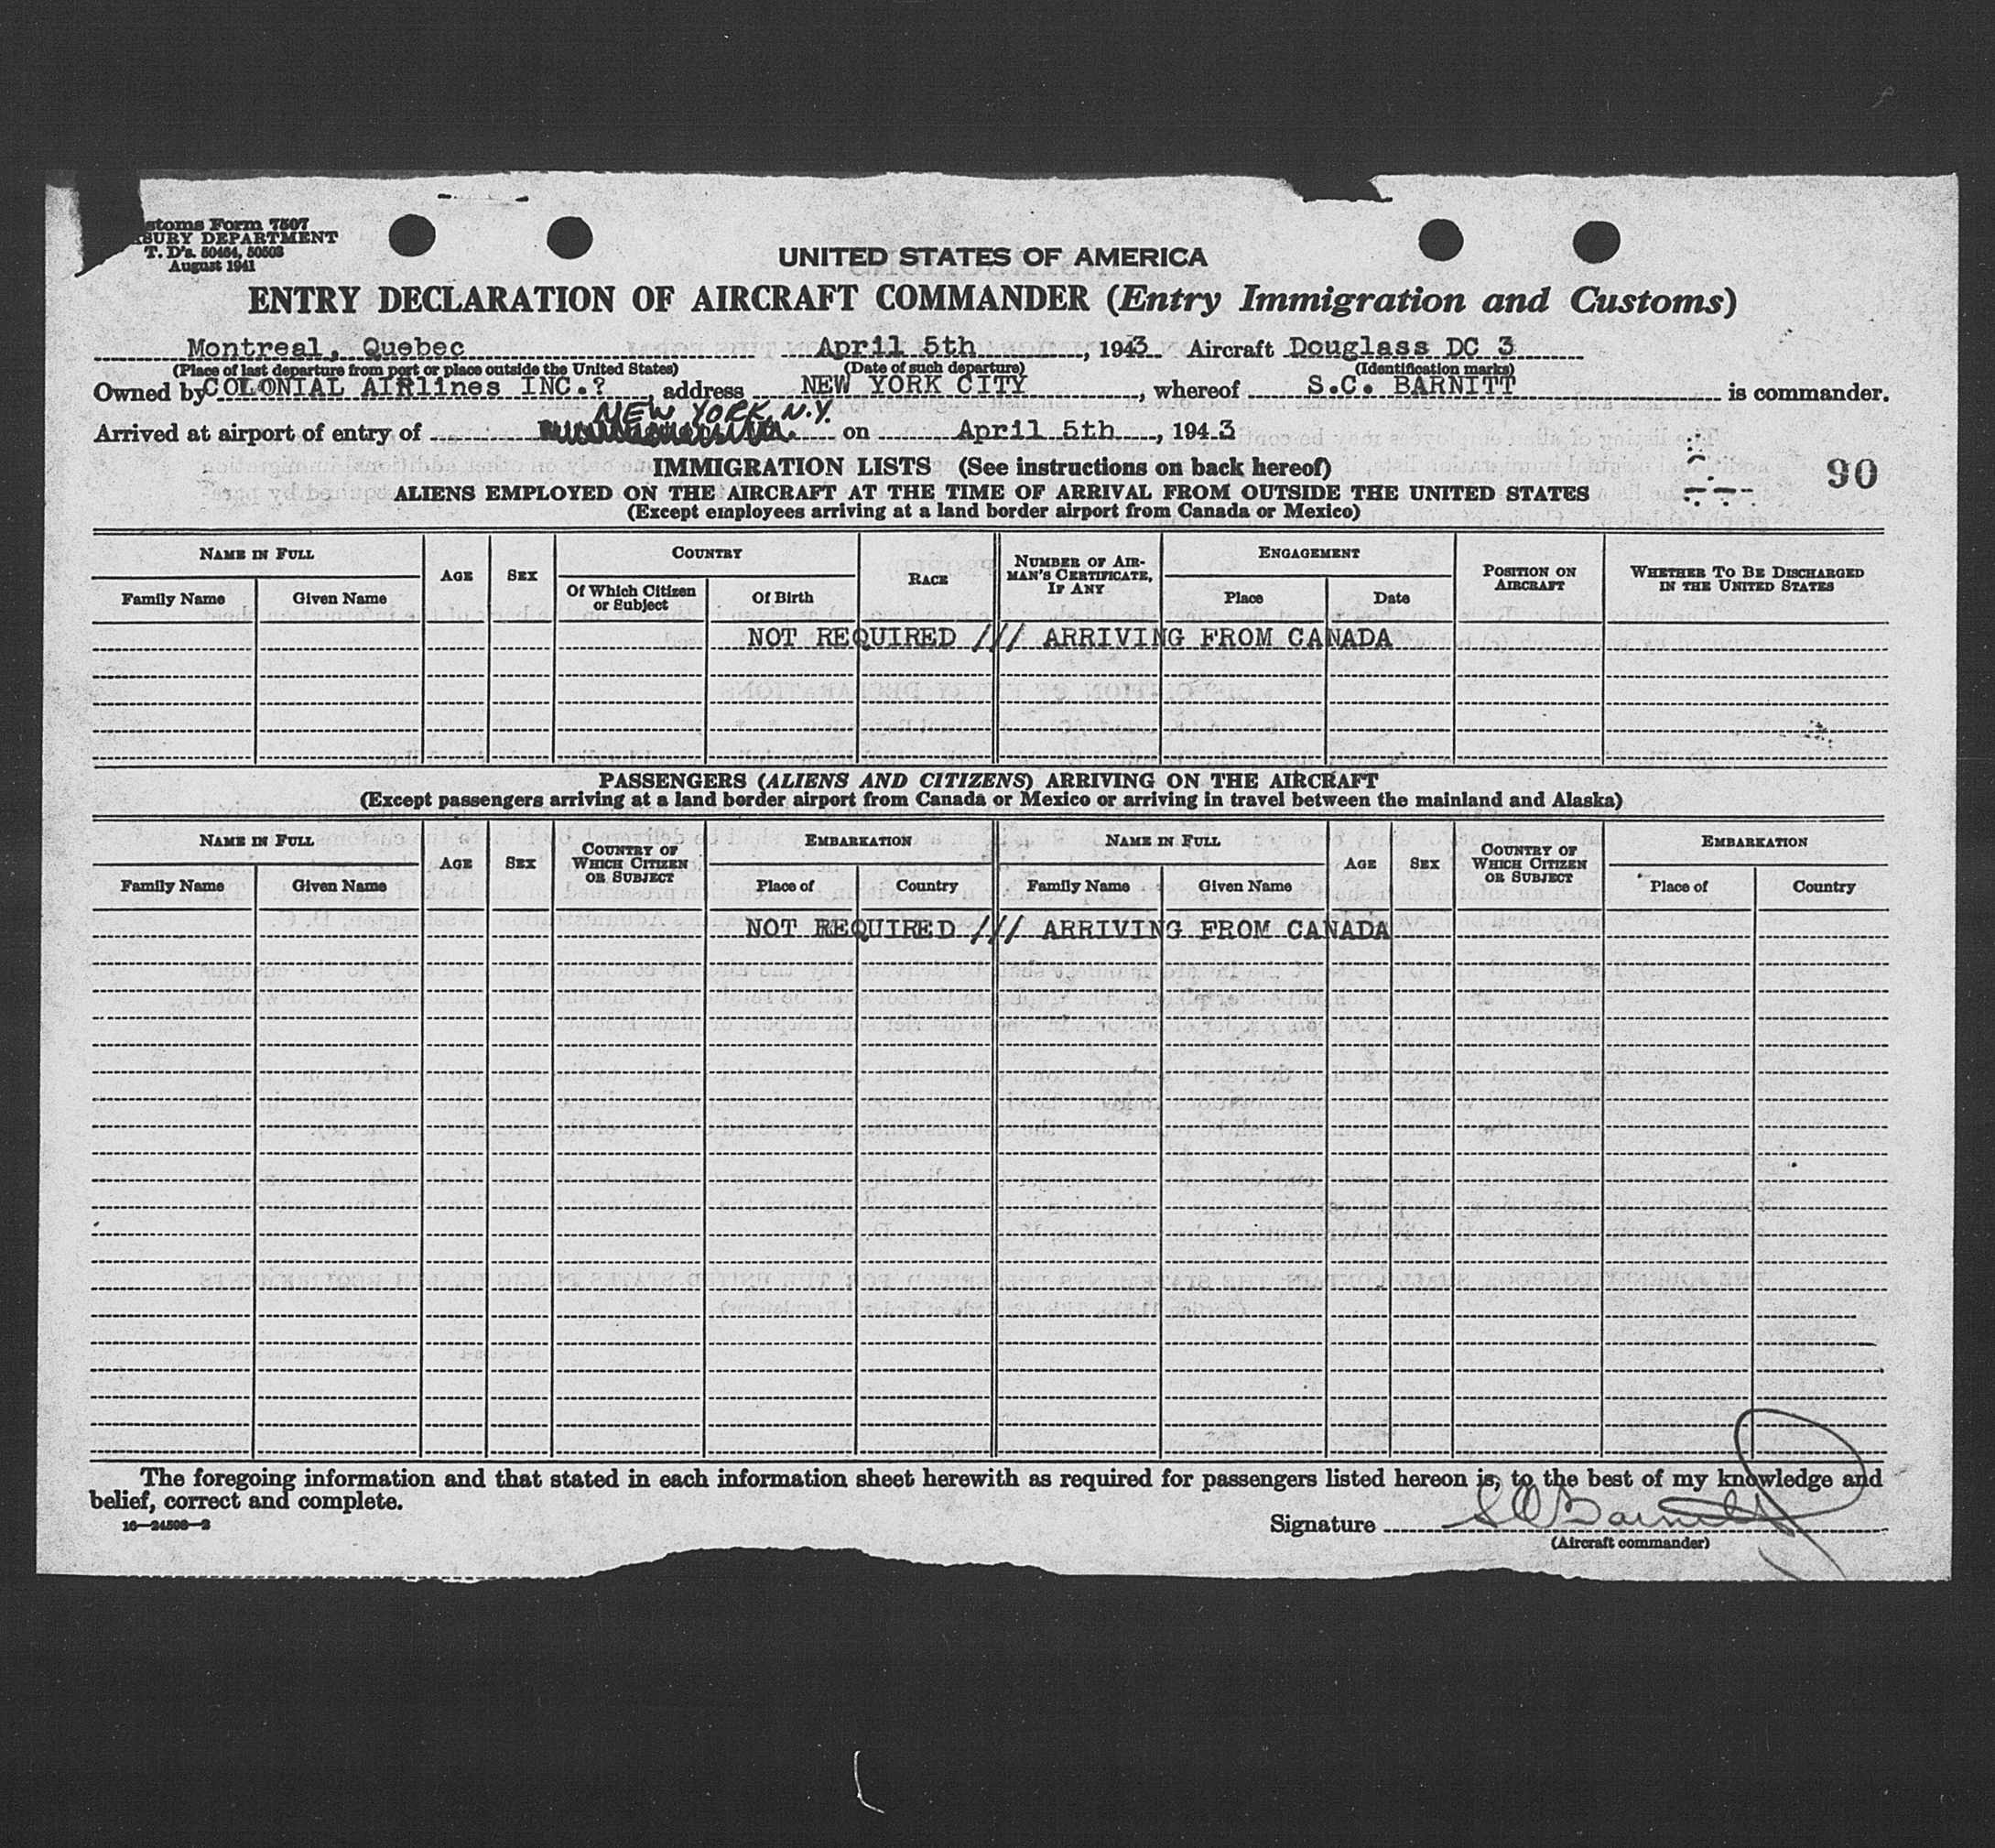 stoms Form 7507
SURY DEPARTMENT
T. D's. 50464, 50503
August 1941
UNITED STATES OF AMERICA
ENTRY DECLARATION OF AIRCRAFT COMMANDER (Entry Immigration and Customs)
Montreal, Quebec April 5th, 1943 Aircraft Douglass DC 3
(Place of last departure from port or place outside the United States) (Date of such departure) (Identification marks)
Owned by COLONIAL AIRlines INC.?, address NEW YORK CITY, whereof S.C. BARNITT is commander.
NEW YORK, N.Y.
Arrived at airport of entry of on April 5th, 1943
IMMIGRATION LISTS (See instructions on back hereof)
90
ALIENS EMPLOYED ON THE AIRCRAFT AT THE TIME OF ARRIVAL FROM OUTSIDE THE UNITED STATES
(Except employees arriving at a land border airport from Canada or Mexico)
NAME IN FULL AGE SEX COUNTRY RACE NUMBER OF AIRMAN'S CERTIFICATE, IF ANY ENGAGEMENT POSITION ON AIRCRAFT WHETHER TO BE DISCHARGED IN THE UNITED STATES
Family Name Given Name Of Which Citizen or Subject Of Birth Place Date
NOT REQUIRED /// ARRIVING FROM CANADA
PASSENGERS (ALIENS AND CITIZENS) ARRIVING ON THE AIRCRAFT
(Except passengers arriving at a land border airport from Canada or Mexico or arriving in travel between the mainland and Alaska)
NAME IN FULL AGE SEX COUNTRY OF WHICH CITIZEN OR SUBJECT EMBARKATION NAME IN FULL AGE SEX COUNTRY OF WHICH CITIZEN OR SUBJECT EMBARKATION
Family Name Given Name Place of Country Family Name Given Name Place of Country
NOT REQUIRED /// ARRIVING FROM CANADA
The foregoing information and that stated in each information sheet herewith as required for passengers listed hereon is, to the best of my knowledge and
belief, correct and complete.
16—24598—2
Signature S C Barnitt
(Aircraft commander)